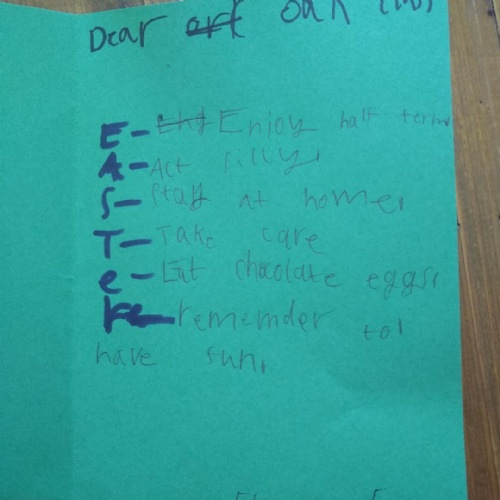 Dear oak
E- Enjoy half term
A- Act silly,
S- Stay at home,
T- Take care
e- Eat chocolate eggs,
r- rememder to
have fun,